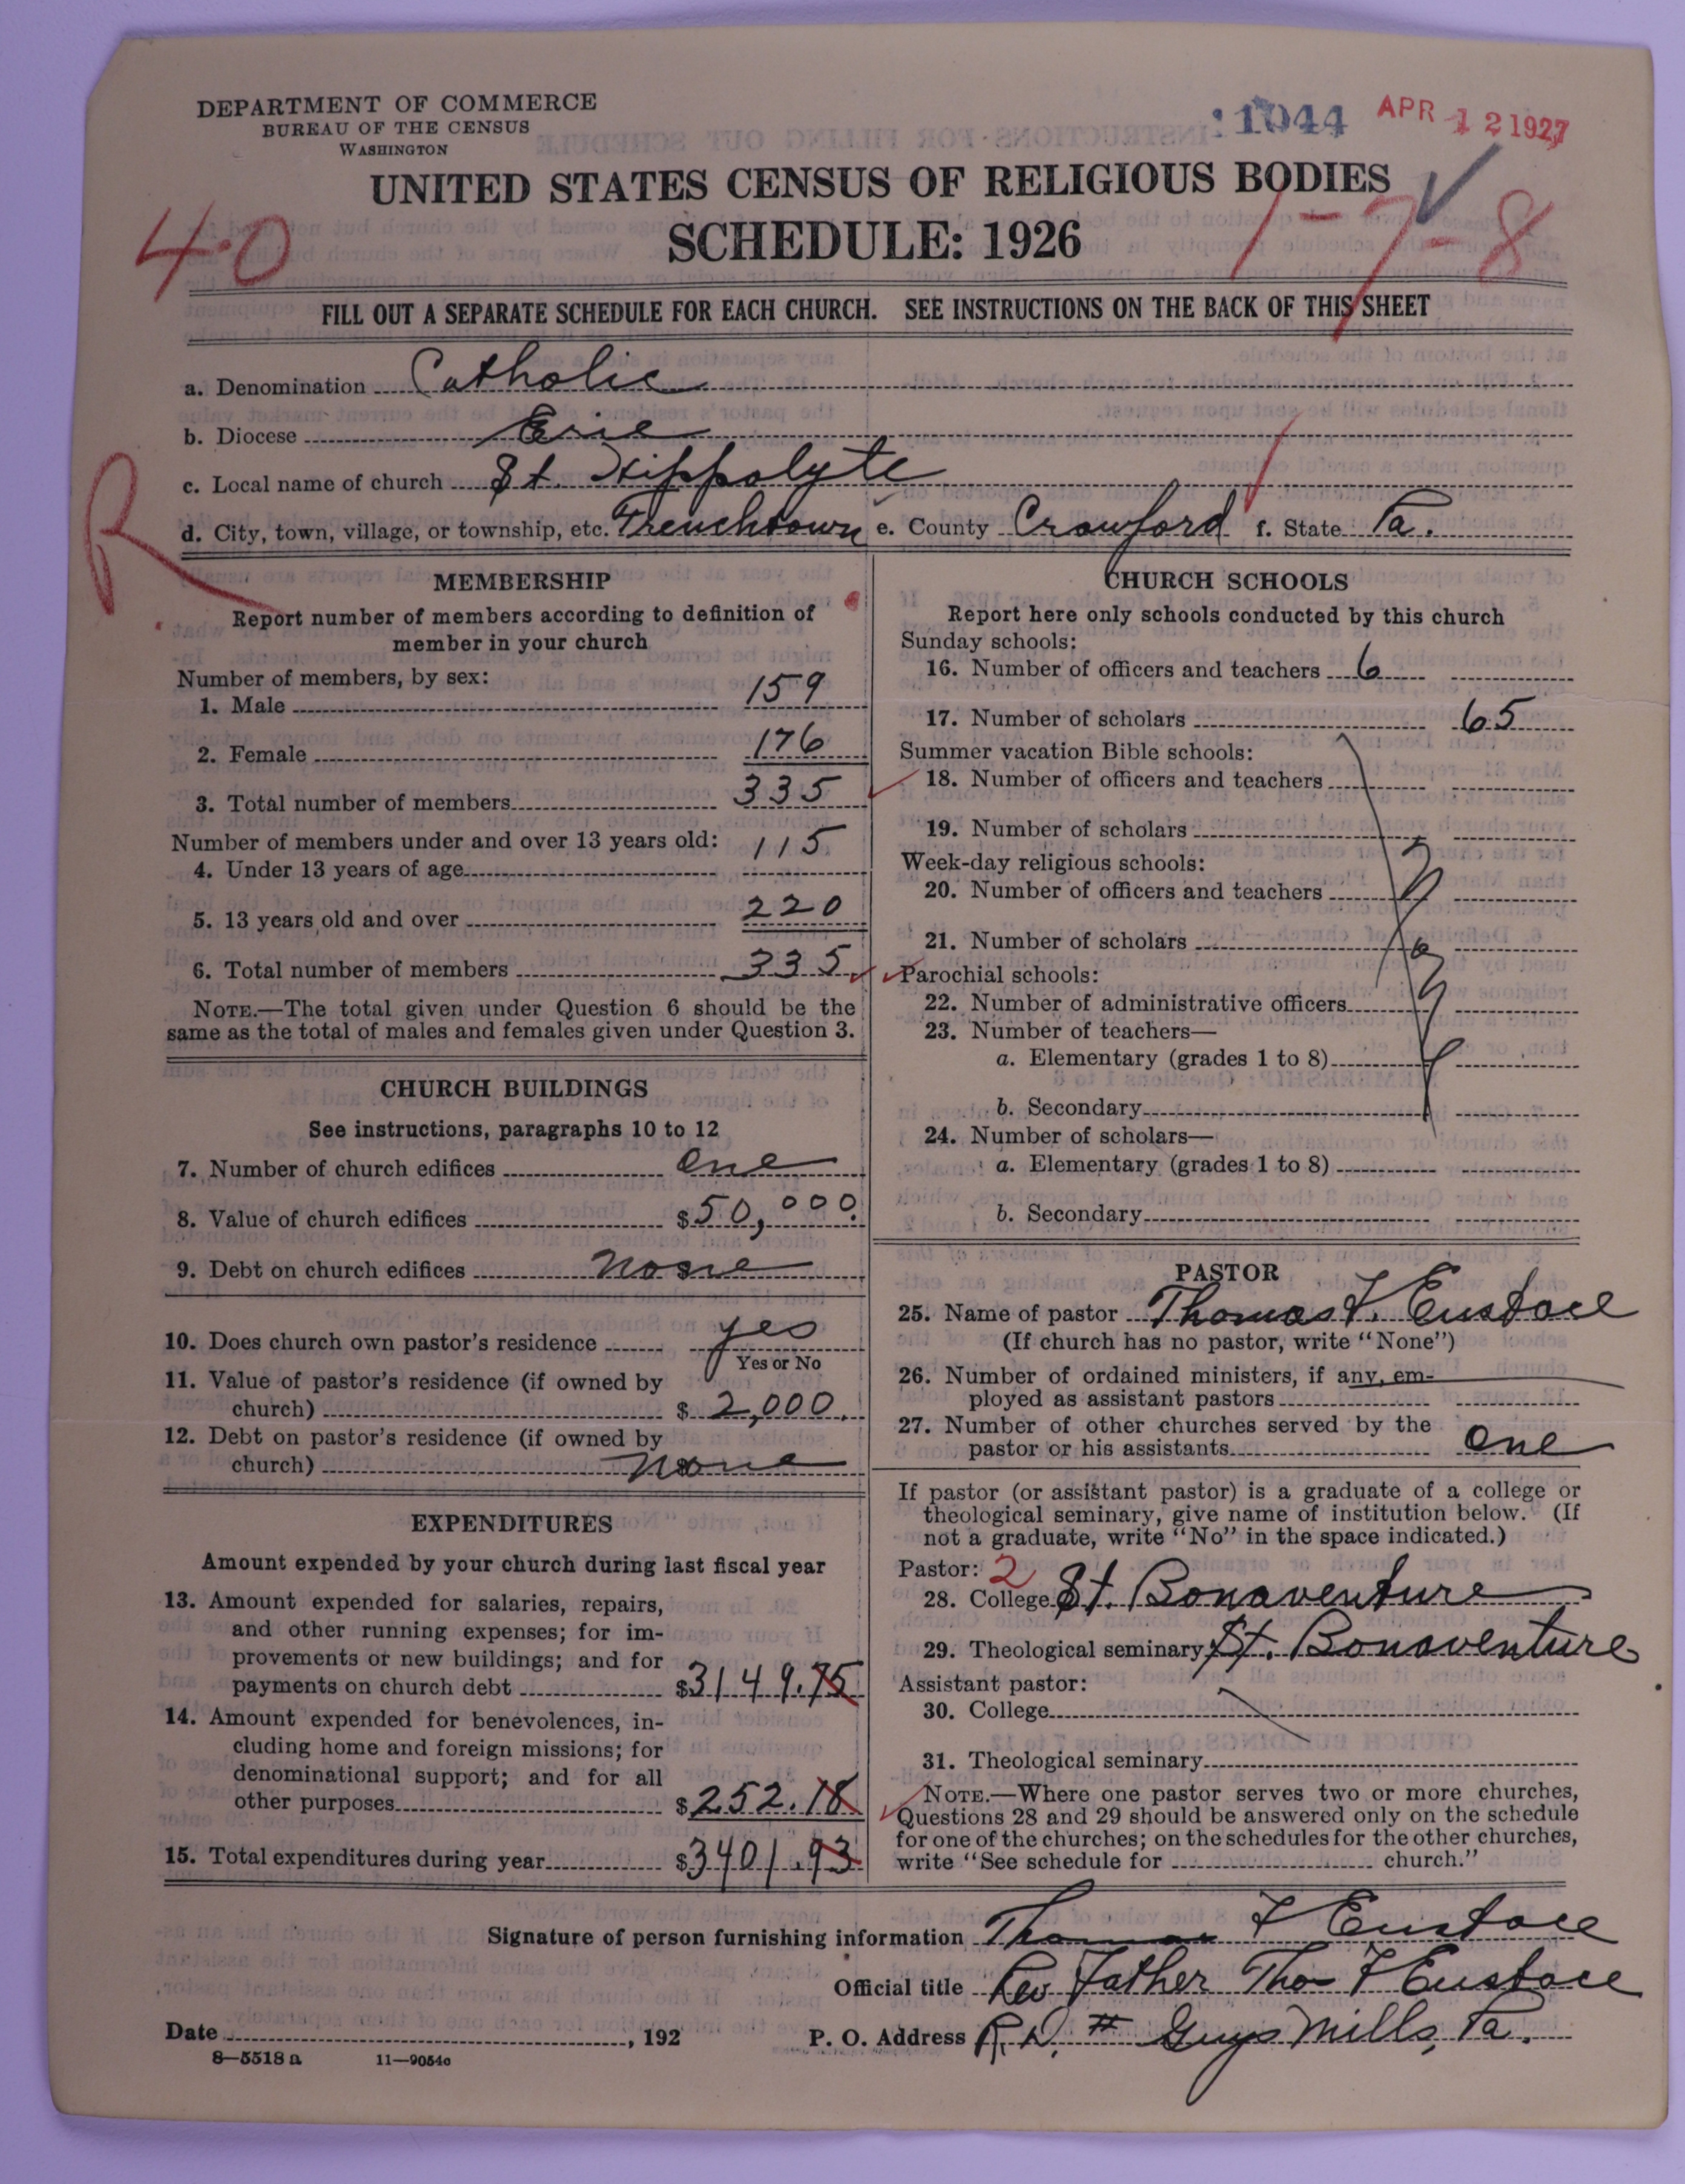 DEPARTMENT OF COMMERCE
BUREAU OF THE CENSUS
WASHINGTON
11044 APR 12 1927
UNITED STATES CENSUS OF RELIGIOUS BODIES
SCHEDULE: 1926
40
1-7-8
FILL OUT A SEPARATE SCHEDULE FOR EACH CHURCH. SEE INSTRUCTIONS ON THE BACK OF THIS SHEET
a. Denomination Catholic
b. Diocese Erie
c. Local name of church St. Hippolyte
d. City, town, village, or township, etc. Frenchtown e. County Crawford f. State Pa.
R
MEMBERSHIP
Report number of members according to definition of
member in your church
Number of members, by sex:
1. Male 159
2. Female 176
3. Total number of members 335
Number of members under and over 13 years old:
4. Under 13 years of age 115
5. 13 years old and over 220
6. Total number of members 335
NOTE.—The total given under Question 6 should be the
same as the total of males and females given under Question 3.
CHURCH BUILDINGS
See instructions, paragraphs 10 to 12
7. Number of church edifices One
8. Value of church edifices $50,000.
9. Debt on church edifices None
10. Does church own pastor's residence yes
Yes or No
11. Value of pastor's residence (if owned by
church) $2,000.
12. Debt on pastor's residence (if owned by
church) None
EXPENDITURES
Amount expended by your church during last fiscal year
13. Amount expended for salaries, repairs,
and other running expenses; for im-
provements or new buildings; and for
payments on church debt $3149.75
14. Amount expended for benevolences, in-
cluding home and foreign missions; for
denominational support; and for all
other purposes $252.18
15. Total expenditures during year $3401.93
CHURCH SCHOOLS
Report here only schools conducted by this church
Sunday schools:
16. Number of officers and teachers 6
17. Number of scholars 65
Summer vacation Bible schools:
18. Number of officers and teachers
19. Number of scholars
Week-day religious schools:
20. Number of officers and teachers
21. Number of scholars
Parochial schools:
22. Number of administrative officers
23. Number of teachers—
a. Elementary (grades 1 to 8)
b. Secondary
24. Number of scholars—
a. Elementary (grades 1 to 8)
b. Secondary
PASTOR
25. Name of pastor Thomas F. Eustace
(If church has no pastor, write "None")
26. Number of ordained ministers, if any, em-
ployed as assistant pastors
27. Number of other churches served by the
pastor or his assistants One
If pastor (or assistant pastor) is a graduate of a college or
theological seminary, give name of institution below. (If
not a graduate, write "No" in the space indicated.)
Pastor: 2
28. College St. Bonaventure
29. Theological seminary St. Bonaventure
Assistant pastor:
30. College
31. Theological seminary
NOTE.—Where one pastor serves two or more churches,
Questions 28 and 29 should be answered only on the schedule
for one of the churches; on the schedules for the other churches,
write "See schedule for church."
Signature of person furnishing information Thomas F Eustace
Official title Rev Father Tho F Eustace
Date , 192 P. O. Address R.D. # Guys Mills, Pa.
8—5518 a 11—9054c